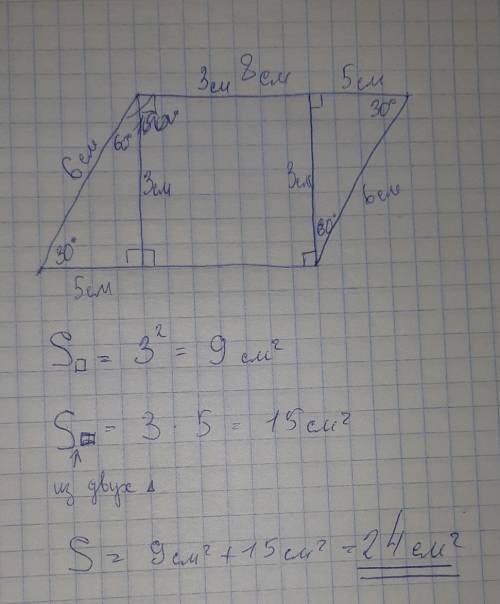 3см 8см 5см
6см 60° 150° 30°
3см 3см 6см
30° 60°
5см
S□ = 3² = 9 см²
S = 3 · 5 = 15 см²
из двух Δ
S = 9см² + 15см² = 24см²